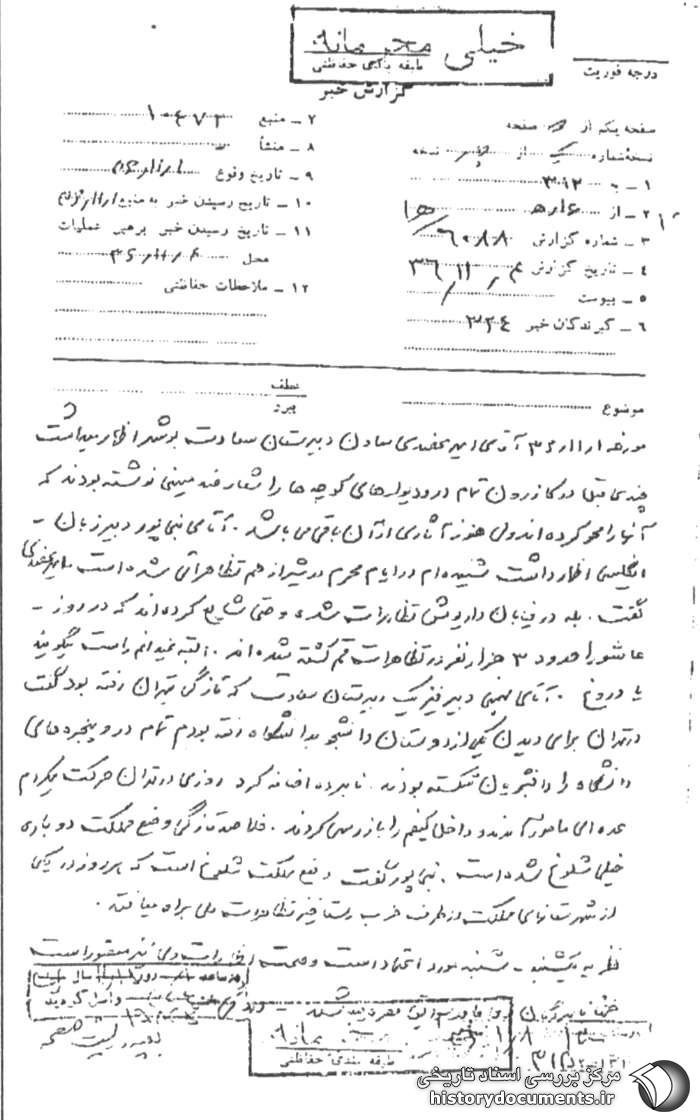 خیلی محرمانه
طبقه بندی حفاظتی
درجه فوریت
گزارش خبر
صفحه یکم از صفحه
نسخه شماره یک از نسخه
۱ – به ۳۱۲
۲ – از ۱۶ ه
۳ – شماره گزارش ۶۰۸۸ / ه۱
۴ – تاریخ گزارش ۳۶
۵ – پیوست
۶ – گیرندگان خبر ۳۲۴
۷ – منبع ۱۰۴۷۳
۸ – منشأ
۹ – تاریخ وقوع
۱۰ – تاریخ رسیدن خبر به منبع
۱۱ – تاریخ رسیدن خبر برهبر عملیات
محل
۱۲ – ملاحظات حفاظتی
موضوع
عطف
پیرو
مورخه ۳۶/۱۱/۱ آقای امیر عضدی معاون دبیرستان سعادت بوشهر اظهار میداشت
چندی قبل در کازرون تمام در و دیوارهای کوچه ها را شعار ضد میهنی نوشته بودند که
آنها را محو کرده اند ولی هنوز آثاری از آن باقی می باشد . آقای نبی پور دبیر زبان –
انگلیسی اظهار داشت شنیده ام در ایام محرم در شیراز هم تظاهراتی شده است . امیر عضدی
گفت . بله در خیابان داریوش تظاهرات شده و حتی شایع کرده اند که در روز –
عاشورا حدود ۳ هزار نفر در تظاهرات قم کشته شده اند . البته نمیدانم راست میگویند
یا دروغ . آقای دبیر فیزیک دبیرستان سعادت که تازگی تهران رفته بود گفت
در تهران برای دیدن یکی از دوستان دانشجو بدانشگاه رفته بودم تمام در و پنجره های
دانشگاه را دانشجویان شکسته بودند . نامبرده اضافه کرد روزی در تهران حرکت میکردم
عده ای مامور آمدند و داخل کیفم را بازرسی کردند . خلاصه تازگی وضع مملکت دوباره
خیلی شلوغ شده است . نبی پور گفت وضع مملکت شلوغ است که هر روز در یکی
از شهرستانهای مملکت از طرف حزب رستاخیز تظاهرات ملی براه میافتد .
نظریه یکشنبه – شنبه مورد اعتماد است و صحت اظهارات وی نیز مقرون است
طبقه بندی حفاظتی
مرکز بررسی اسناد تاریخی
historydocuments.ir